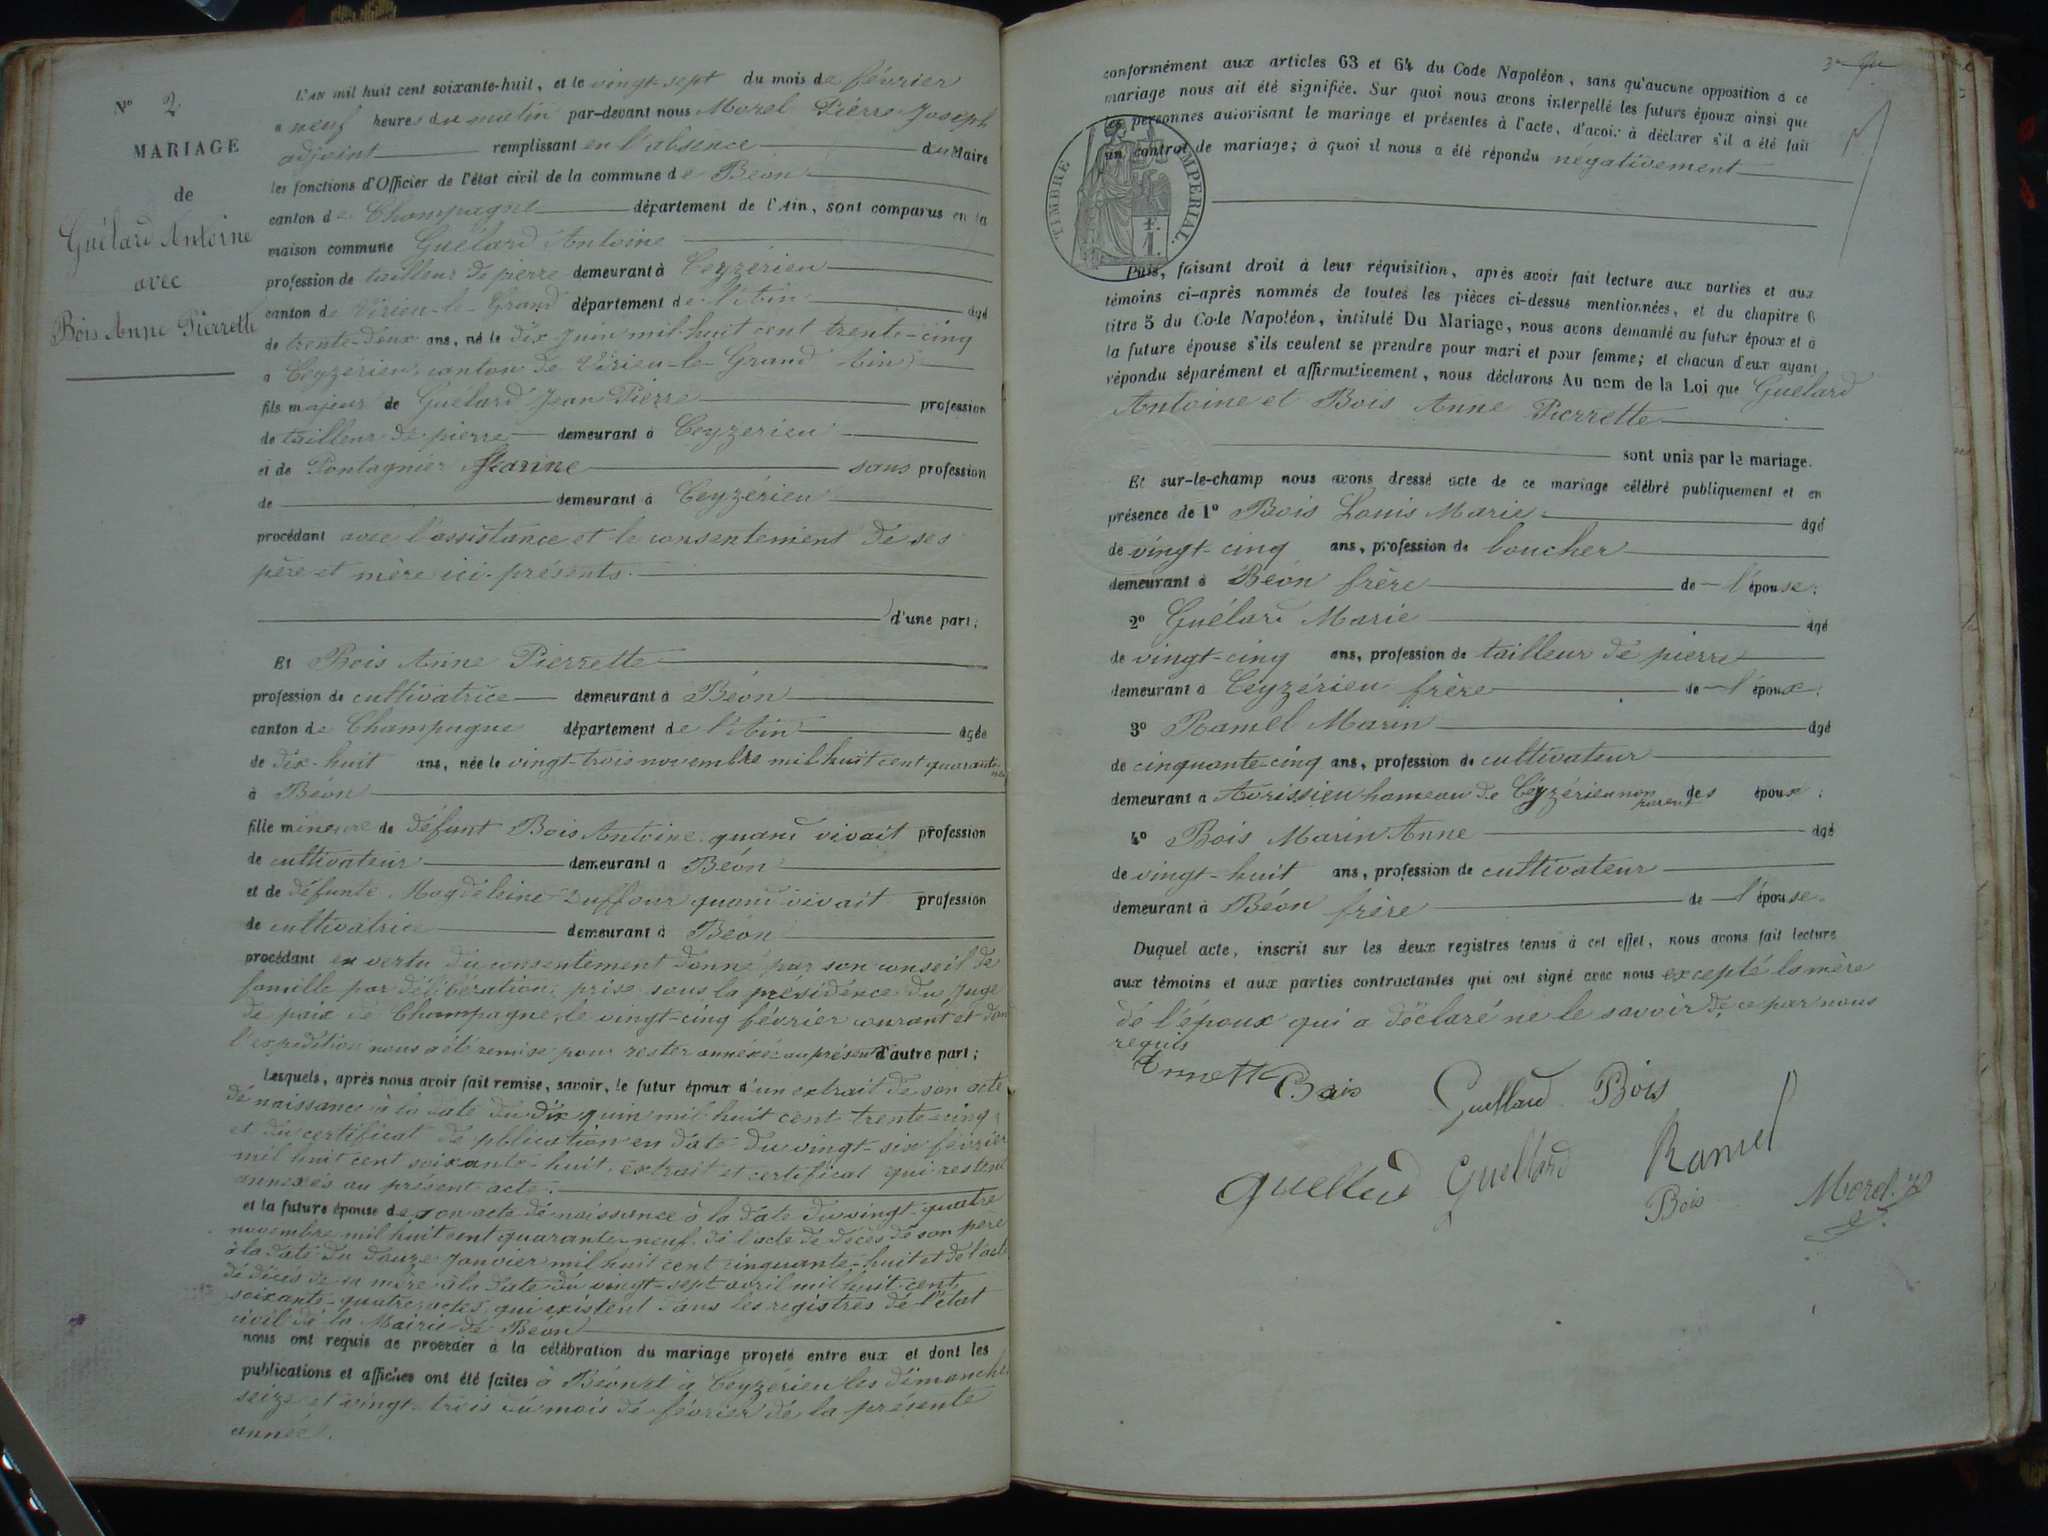 N° 2
MARIAGE
de
Guélard Antoine
avec
Bois Anne Pierrette
L'AN mil huit cent soixante-huit, et le vingt-sept du mois de février
a neuf heures du matin par-devant nous Morel Pierre Joseph
adjoint remplissant en l'absence du Maire
les fonctions d'Officier de l'état civil de la commune de Béon
canton de Champagne département de l'Ain, sont comparus en la
maison commune Guélard Antoine
profession de tailleur de pierre demeurant à Ceyzérieu
canton de Virieu-le-Grand département de l'Ain âgé
de trente-deux ans, né le dix Juin mil huit cent trente-cinq
a Ceyzerieu canton de Virieu-le-Grand Ain
fils majeur de Guélard Jean Pierre profession
de tailleur de pierre demeurant à Ceyzerieu
et de Pontagnier sans profession
de demeurant à Ceyzérieu
procédant avec l'assistance et le consentement de ses
père et mère ici présents.
d'une part;
Et Bois Anne Pierrette
profession de cultivatrice demeurant à Béon
canton de Champagne département de l'Ain âgée
de dix-huit ans, née le vingt-trois novembre mil huit cent quarante-
à Béon
fille mineure de défunt Bois Antoine quand vivait profession
de cultivateur demeurant a Béon
et de défunte Magdeleine Duffour quand vivait profession
de cultivatrice demeurant à Béon
procédant en vertu du consentement donné par son conseil de
famille par délibération prise sous la présidence du Juge
de paix de Champagne, le vingt-cinq février courant et dont
l'expédition nous a été remise pour rester annéxée au présent d'autre part;
Lesquels, après nous avoir fait remise, savoir, le futur époux d'un extrait de son acte
de naissance à la date du dix juin mil huit cent trente-cinq
et du certificat de publication en date du vingt-six février
mil huit cent soixante-huit, extrait et certificat qui restent
annexés au présent acte.
et la future épouse de son acte de naissance à la date du vingt-quatre
novembre mil huit cent quarante-neuf, de l'acte de décès de son père
à la date du douze Janvier mil huit cent cinquante-huit et de l'acte
de décès de sa mère à la date du vingt-sept avril mil huit cent
soixante-quatre, actes qui existent dans les registres de l'état
civil de la Mairie de Béon
nous ont requis de procéder à la célébration du mariage projeté entre eux et dont les
publications et affiches ont été faites à Béon et à Ceyzérieu les dimanches
seize et vingt-trois du mois de février de la présente
année.
conformément aux articles 63 et 64 du Code Napoléon, sans qu'aucune opposition à ce
mariage nous ait été signifiée. Sur quoi nous avons interpellé les futurs époux ainsi que
les personnes autorisant le mariage et présentes à l'acte, d'avoir à déclarer s'il a été fait
un contrat de mariage; à quoi il nous a été répondu négativement
TIMBRE IMPERIAL.
Puis, faisant droit à leur réquisition, après avoir fait lecture aux parties et aux
témoins ci-après nommés de toutes les pièces ci-dessus mentionnées, et du chapitre 6
titre 5 du Code Napoléon, intitulé Du Mariage, nous avons demandé au futur époux et à
la future épouse s'ils veulent se prendre pour mari et pour femme; et chacun d'eux ayant
répondu séparément et affirmativement, nous déclarons Au nom de la Loi que Guélard
Antoine et Bois Anne Pierrette
sont unis par le mariage.
Et sur-le-champ nous avons dressé acte de ce mariage célébré publiquement et en
présence de 1° Bois Louis Marie âgé
de vingt-cinq ans, profession de boucher
demeurant à Béon frère de l'épouse;
2° Guélard Marie âgé
de vingt-cinq ans, profession de tailleur de pierre
demeurant à Ceyzérieu frère de l'époux;
3° Ramel Marin âgé
de cinquante-cinq ans, profession de cultivateur
demeurant a Avrissieu hameau de Ceyzérieu non parent des époux;
4° Bois Marin Anne âgé
de vingt-huit ans, profession de cultivateur
demeurant à Béon frère de l'épouse.
Duquel acte, inscrit sur les deux registres tenus à cet effet, nous avons fait lecture
aux témoins et aux parties contractantes qui ont signé avec nous excepté la mère
de l'époux qui a déclaré ne le savoir de ce par nous
requis
Annette Bois Guellard Bois
Guellard Guellard Ramel
Bois Morel